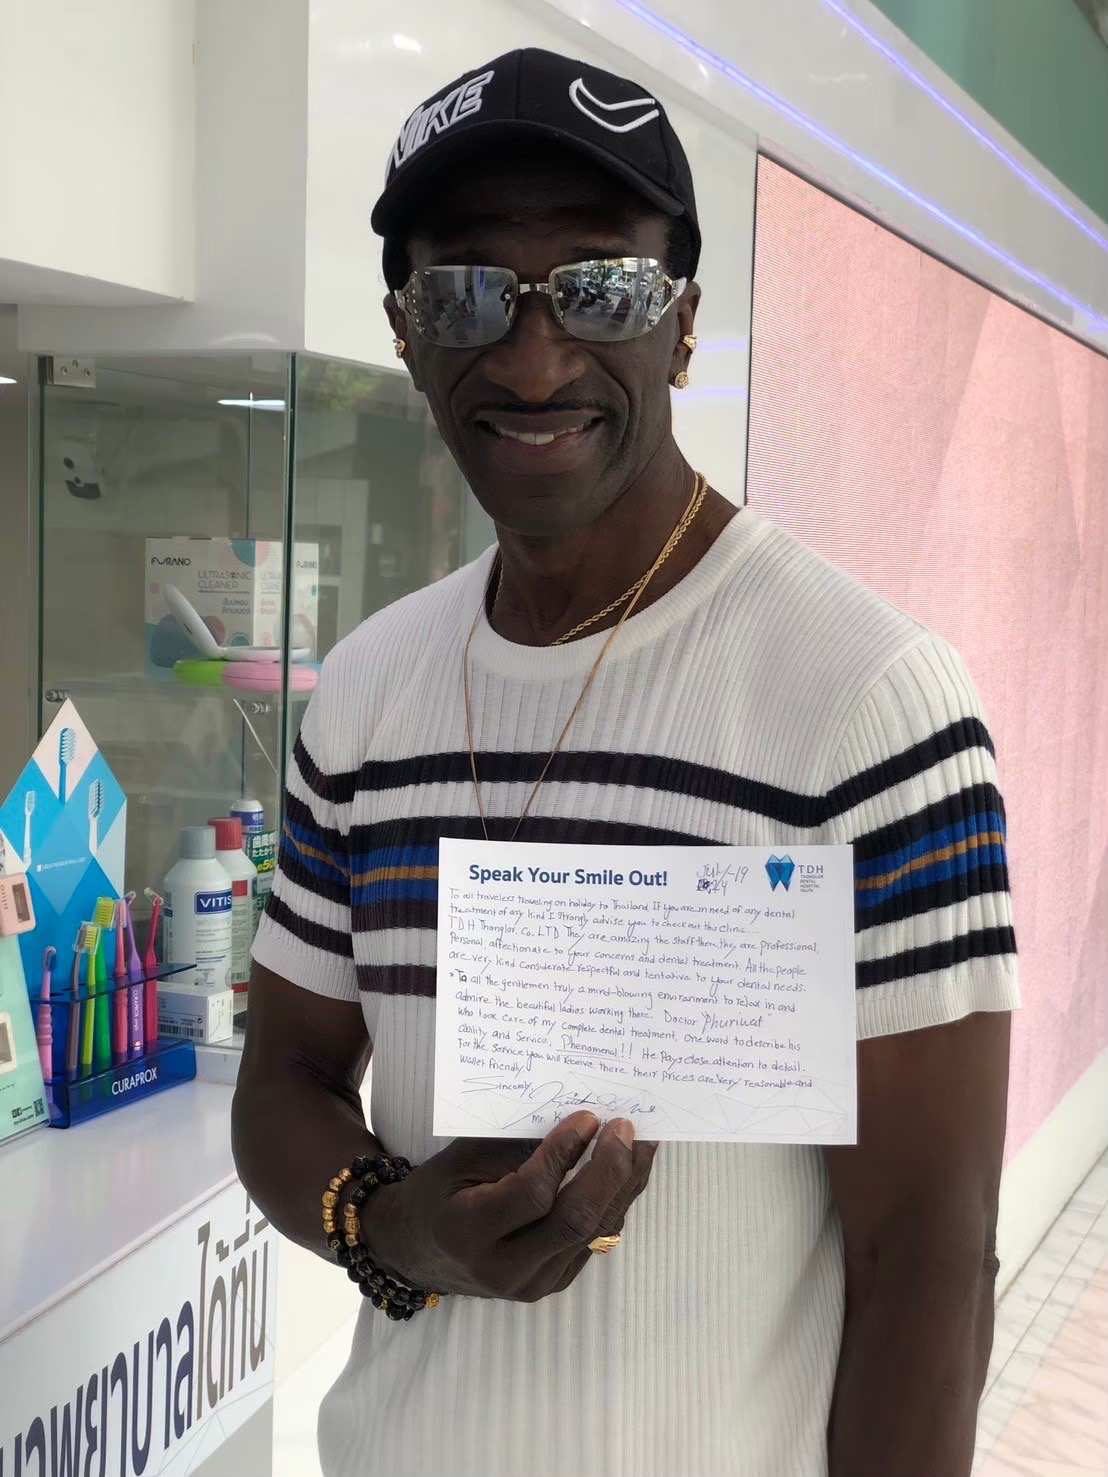 NIKE
FURANO
ULTRASONIC
CLEANER
VITIS
CURAPROX
Speak Your Smile Out!
July-19
24
TDH
THONGLOR
DENTAL
HOSPITAL
To all travelers traveling on holiday to Thailand If you are in need of any dental
treatment of any kind I strongly advise you to check out this Clinic...
TDH Thonglor, Co. LTD They are amazing the staff there, they are professional,
Personal, affectionate to your concerns and dental treatment. All the people
are very kind considerate respectful and tentative to your dental needs.
*To all the gentlemen truly a mind-blowing environment to relax in and
admire the beautiful ladies working there. Doctor "Phuriwat"
who took care of my complete dental treatment, one word to describe his
ability and Service, Phenomenal!! He Pays close attention to detail.
For the Service you will receive there their Prices are very reasonable and
wallet friendly
Sincerely,
Mr.